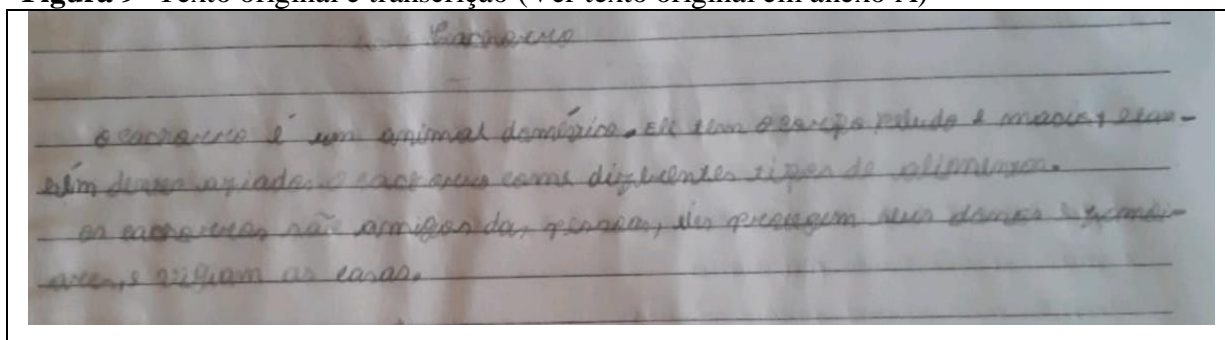 Figura 9 - Texto original e transcrição (Ver texto original em anexo A)
Cachorro
o cachorro é um animal doméstico. Ele tem o corpo peludo e macio, e tam-
bém dentes afiados. o cachorro come diferentes tipos de alimentos.
os cachorros são amigos das pessoas, eles protegem seus donos e
e vigiam as casas.